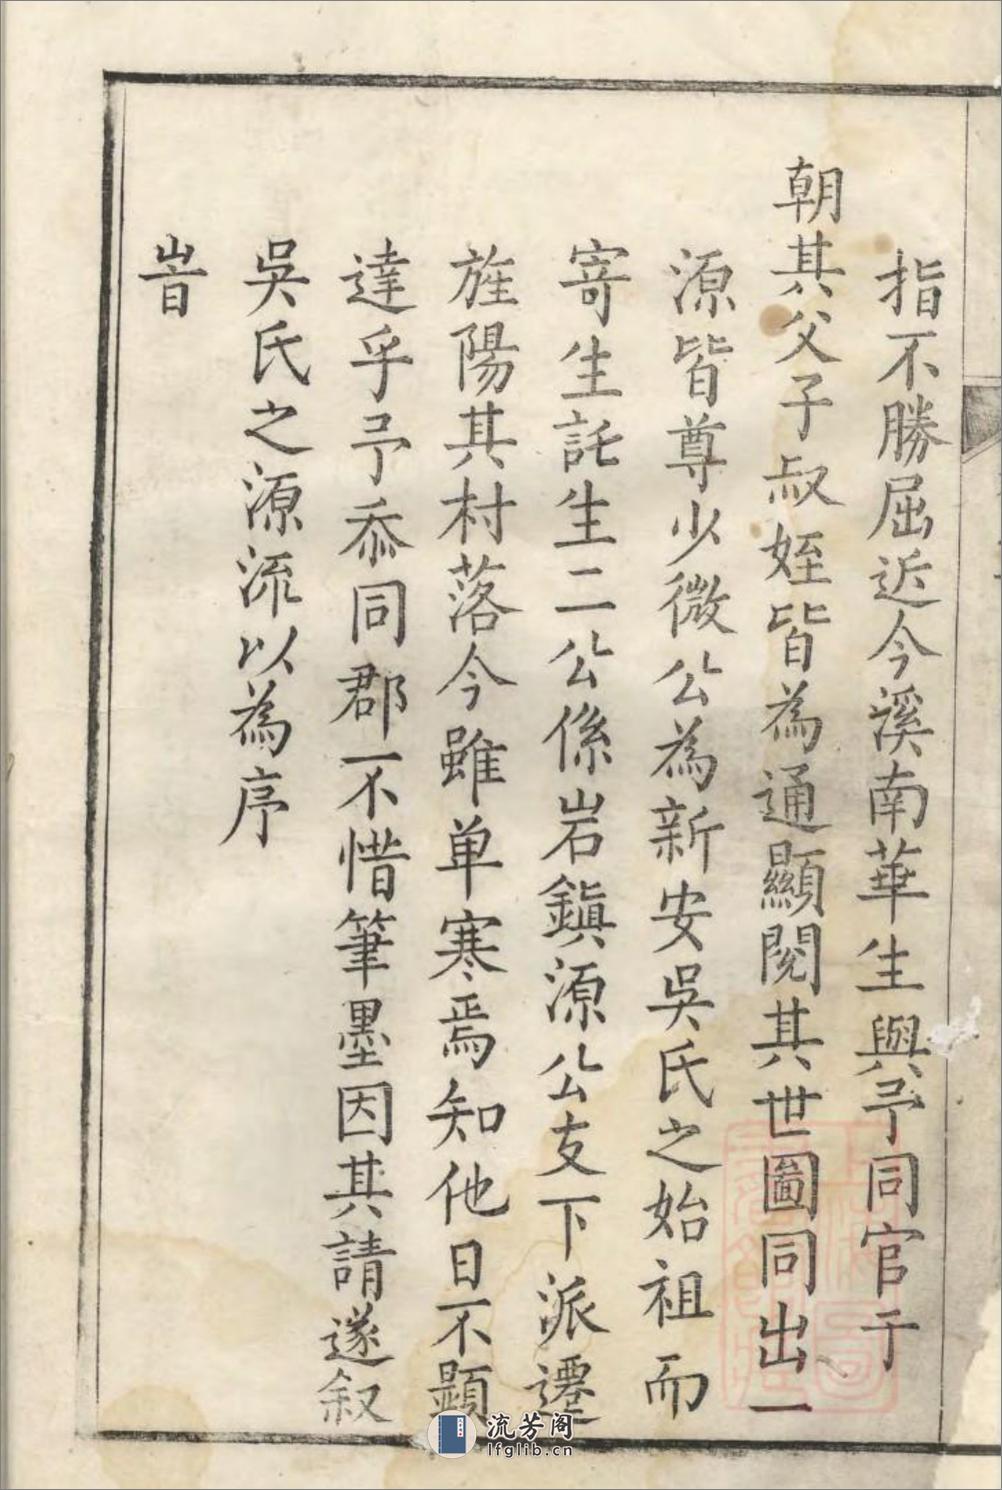 指不勝屈近今溪南華生與予同官于
朝其父子叔姪皆為通顯閱其世圖同出一
源皆尊少微公為新安吳氏之始祖而
寄生託生二公係岩鎮源公支下派遷
旌陽其村落今雖单寒焉知他日不顯
達乎予忝同郡不惜筆墨因其請遂叙
吳氏之源流以為序
旹
流芳阁
lfglib.cn